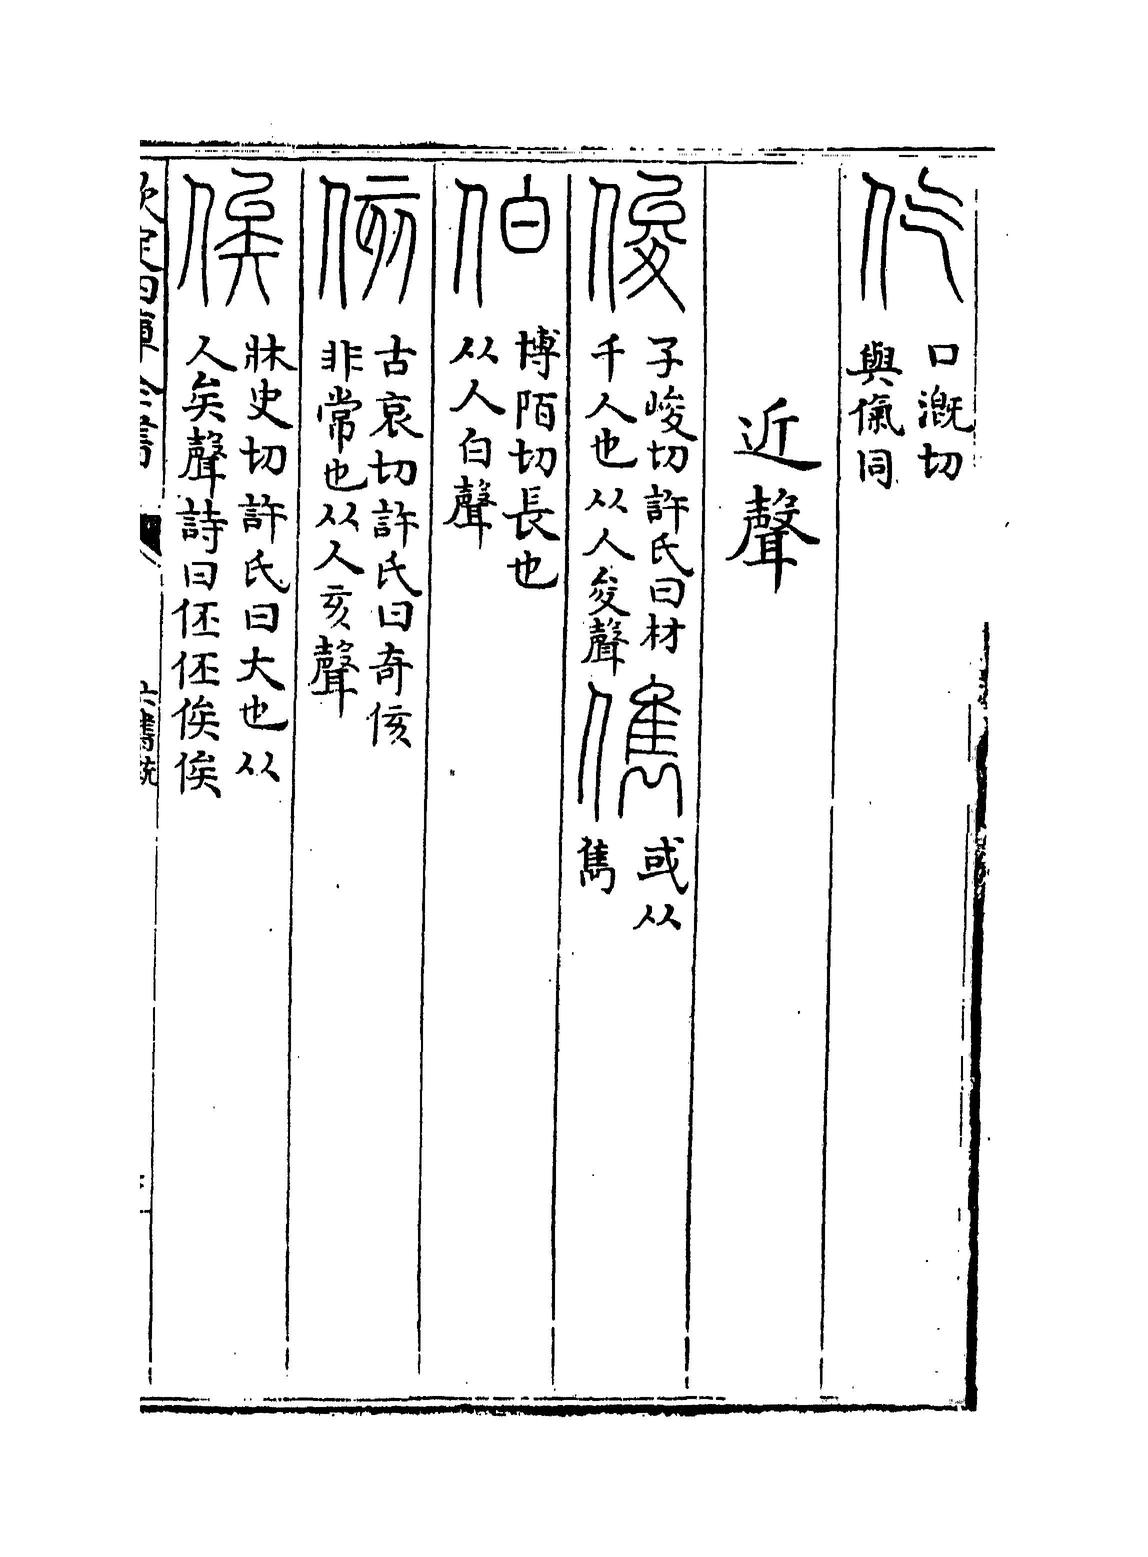 口漑切
與㒫同
近聲
俊 子峻切許氏曰材
千人也从人夋聲
儁 或从
雋
伯 博陌切長也
从人白聲
侅 古哀切許氏曰奇侅
非常也从人亥聲
俟 牀史切許氏曰大也从
人矣聲詩曰伾伾俟俟
欽定四庫全書
六書統